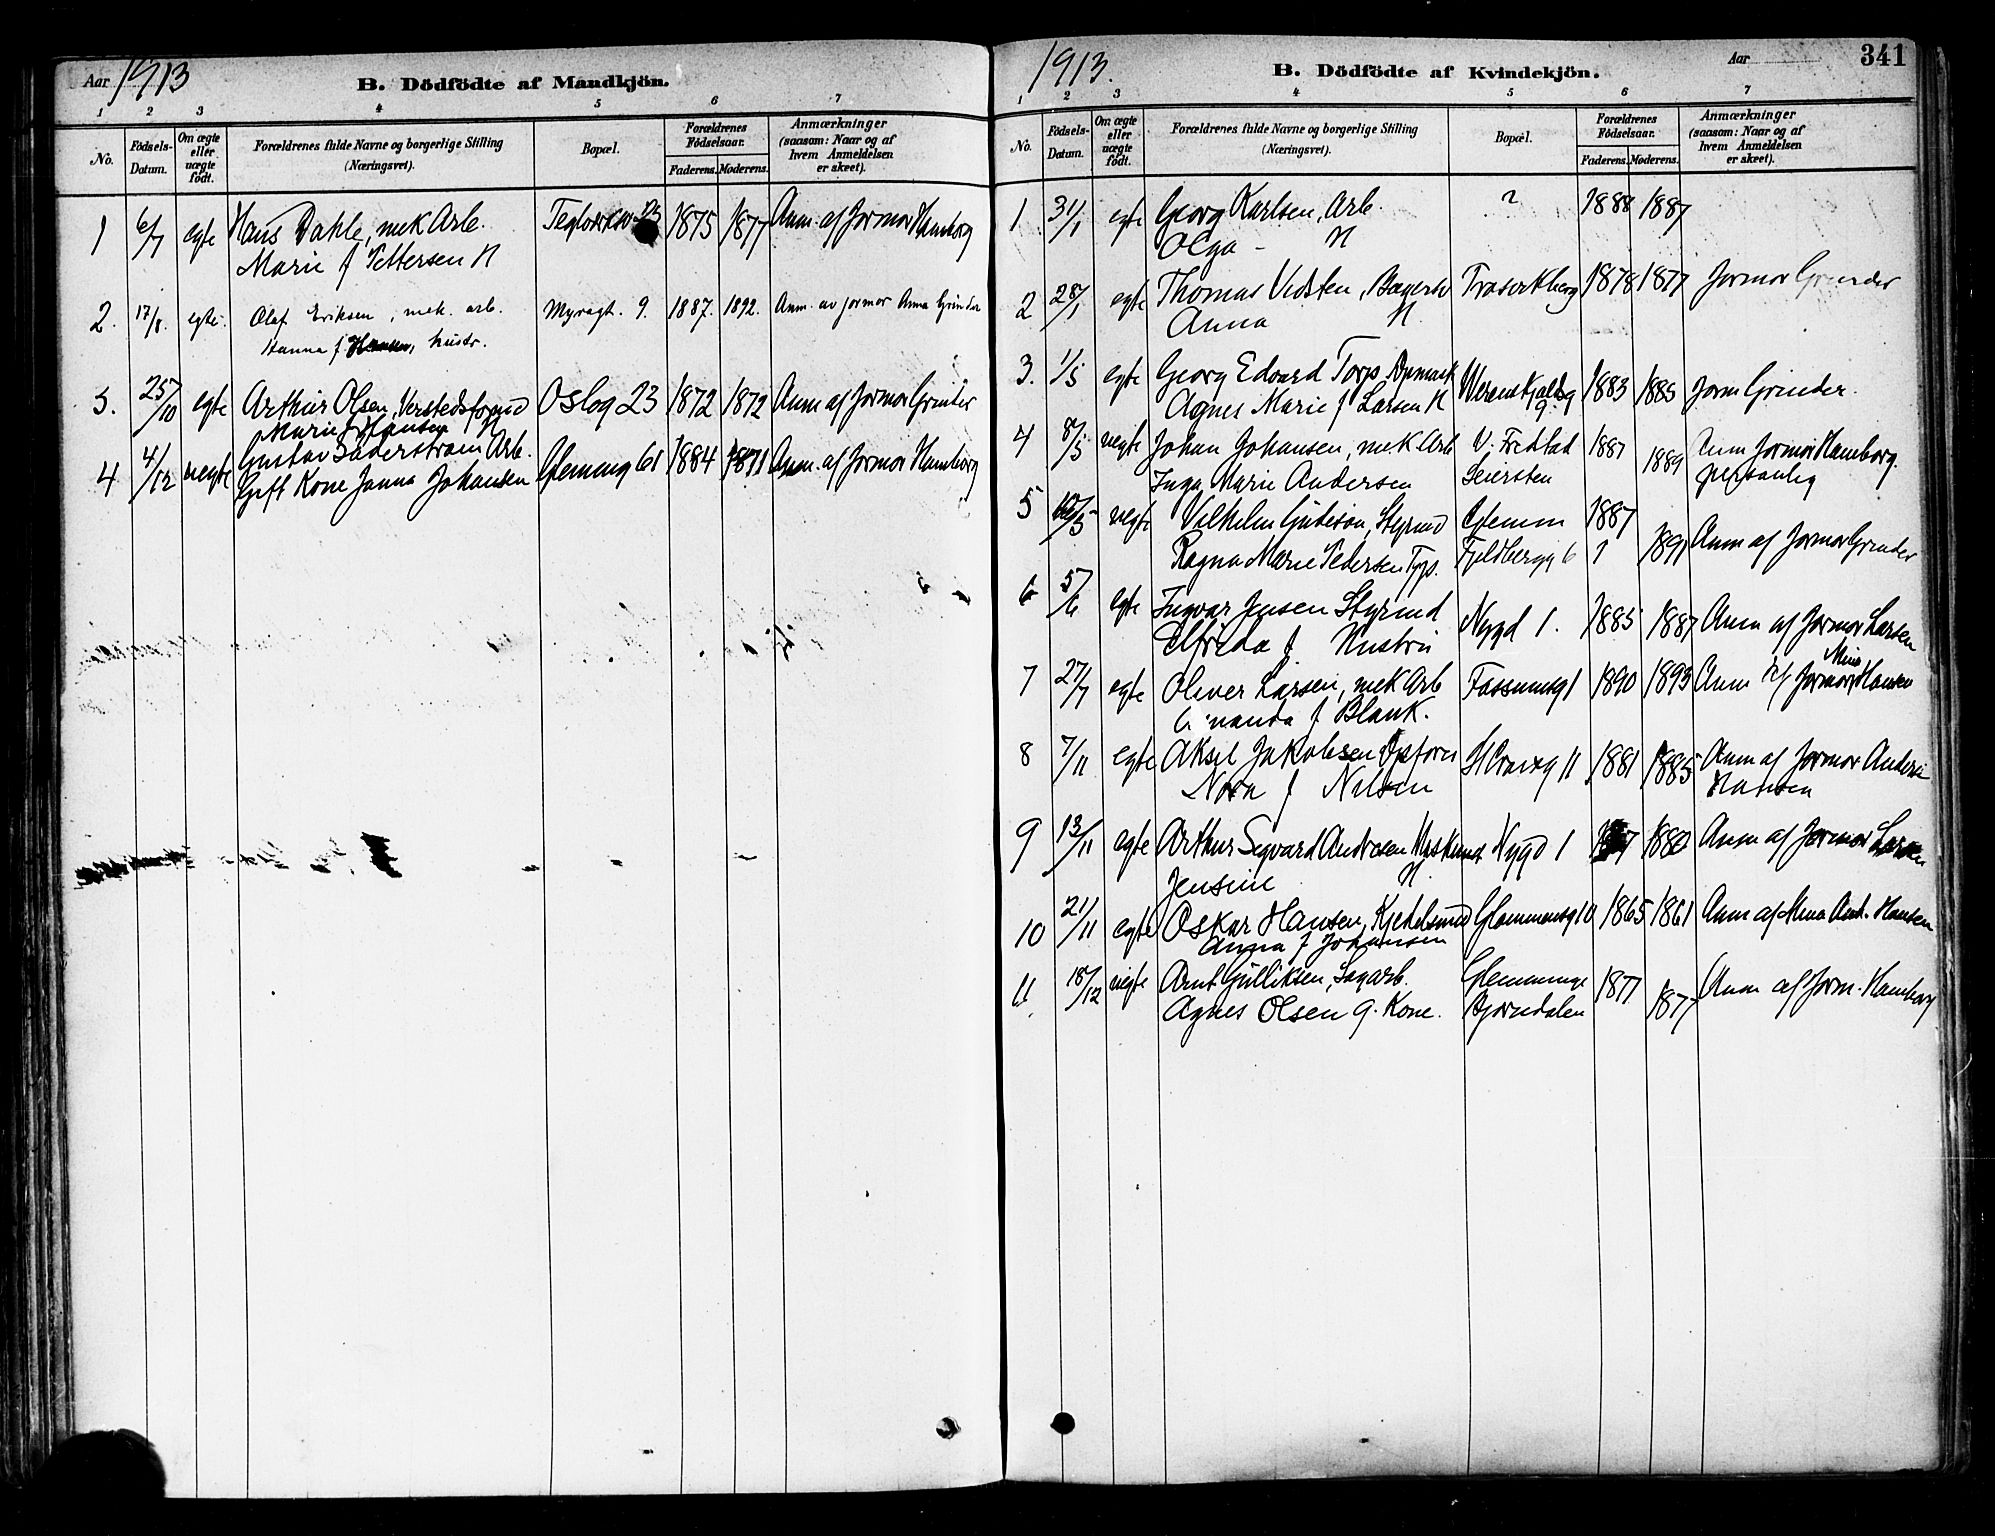 Aar 1913
B. Dödfödte af Mandkjön.
1 2 3 4 5 6 7
No. Födsels-Datum. Om ægte eller uægte födt. Forældrenes fulde Navne og borgerlige Stilling (Næringsvei). Bopæl. Forældrenes Födselsaar. Faderens. Moderens. Anmærkninger (saasom: Naar og af hvem Anmeldelsen er skeet).
1 6/7 egte Hans Dahle, mek Arb. 23 1875 1877 Anm. af Jormor Hamborg
Marie f Pettersen H
2. 17/8. egte. Olaf Eriksen, mek. arb. Myragt. 9. 1887. 1892. Anm. av jormor Anna Grinder
Hanna f. Hansen, hustr.
3. 25/10 egte Arthur Olsen, Oslog 23 1872 1872 Anm af Jormor Grinder
Marie f Hansen
4 4/12 uegte Gustav Söderström Arb. Glemmg 61 1884 1871 Anm. af Jormor Hamborg
Gift Kone Janna Johansen
1913.
B. Dödfödte af Kvindekjön.
Aar 341
1 2 3 4 5 6 7
No. Födsels-Datum. Om ægte eller uægte födt. Forældrenes fulde Navne og borgerlige Stilling (Næringsvei). Bopæl. Forældrenes Födselsaar. Faderens. Moderens. Anmærkninger (saasom: Naar og af hvem Anmeldelsen er skeet).
1 31/1 egte Georg Karlsen, Arb. ? 1888 1887
Olga - H
2 28/1 egte Thomas Vidsten, Traravkberg 1878 1877 Jormor Grinder
Anna H
3. 1/5 egte Georg Edvard Torp 1883 1885 Jorm Grinder.
Agnes Marie f Larsen H 9.
4 8/5 uegte Johan Johansen, mek Arb V. Fredstad 1887 1889 Anm Jormor Hamborg.
Inga Marie Andersen Seiersten personlig
5 uegte Vilhelm Styrmd Glemm 1887
Ragna Marie Pedersen Fjeldbergg 6 1891 Anm af Jormor Grinder
6 5/6 egte Ingvar Jensen Styrmd Nygd 1. 1885 1887 Anm af Jormor Larsen
Elfrida f Hustru
7 27/7 egte Oliver Larsen, mek Arb Fossumsg 1 1890 1893 Anm af Jormor Mina Hansen
f Blank.
8 7/11 egte Aksel Jakobsen 11 1881 1885 Anm af Jormor
Nora f Nilsen Hansen
9 13/11 egte Arthur Sigvard Andresen Nygd 1 1880 Anm af Jormor Larsen
Jensine H.
10 21/11 egte Oskar Hansen, Kjedelsmd Glommensg 10 1865 1861 Anm af Mina Hansen
Anna f Johansen
11. 18/12 uegte Arnt Gulliksen, Sagarb. Glemminge 1877 1877 Anm af Jorm. Hamborg
Agnes Olsen g. Kone. Bjørndalen